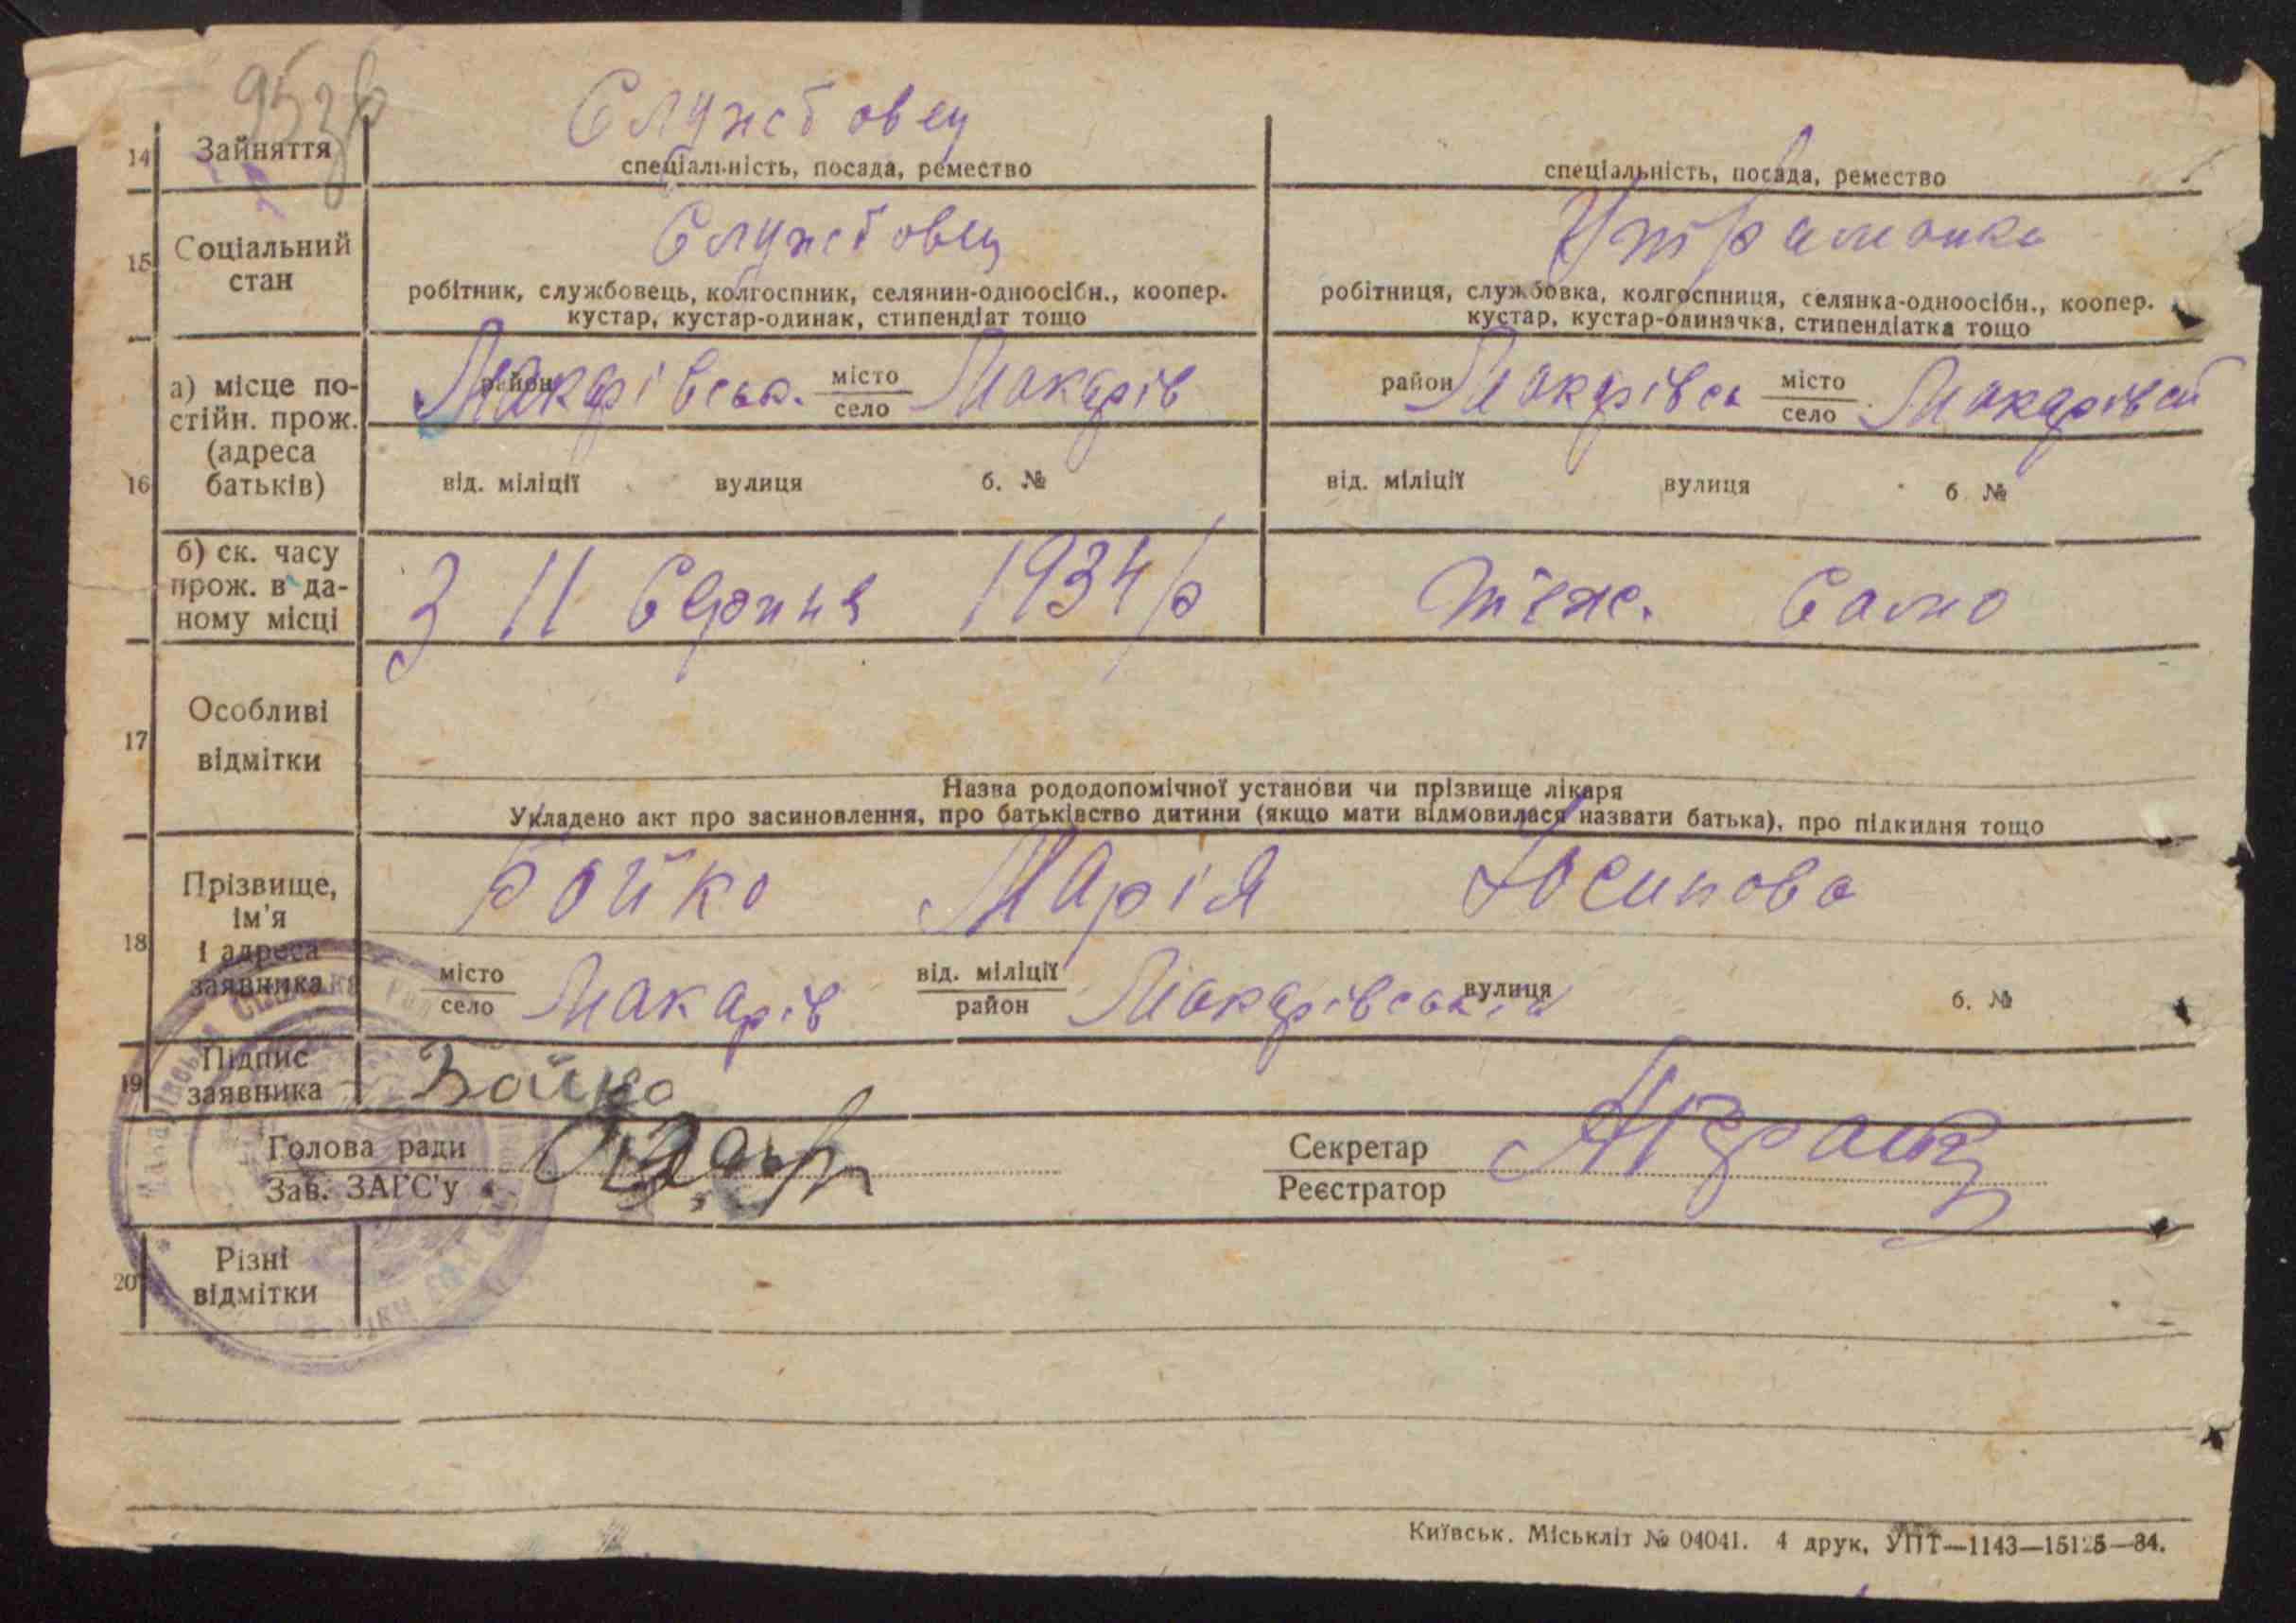 953
Службовец
14 Зайняття
спеціальність, посада, ремество
спеціальність, посада, ремество
15 Соціальний стан
Службовец
Утраманка
робітник, службовець, колгоспник, селянин-одноосібн., коопер.
кустар, кустар-одинак, стипендіат тощо
робітниця, службовка, колгоспниця, селянка-одноосібн., коопер.
кустар, кустар-одиначка, стипендіатка тощо
16
а) місце по-
стійн. прож.
(адреса
батьків)
район Макарівськ. місто село Макарів
район Макарівск місто село Макарівсй
від. міліції вулиця б. №
від. міліції вулиця б. №
б) ск. часу
прож. в да-
ному місці
З 11 Серпня 1934 р
теж. Само
17 Особливі
відмітки
Назва рододопомічної установи чи прізвище лікаря
Укладено акт про засиновлення, про батьківство дитини (якщо мати відмовилася назвати батька), про підкидня тощо
18
Прізвище,
ім'я
і адреса
заявника
Бойко Марія Юсипова
місто село Макарів від. міліції район Макарівський вулиця б. №
19 Підпис
заявника
Бойко
Голова ради
Зав. ЗАГС'у
Секретар
Реєстратор
20 Різні
відмітки
Київськ. Міськліт № 04041. 4 друк. УПТ—1143—15125—34.